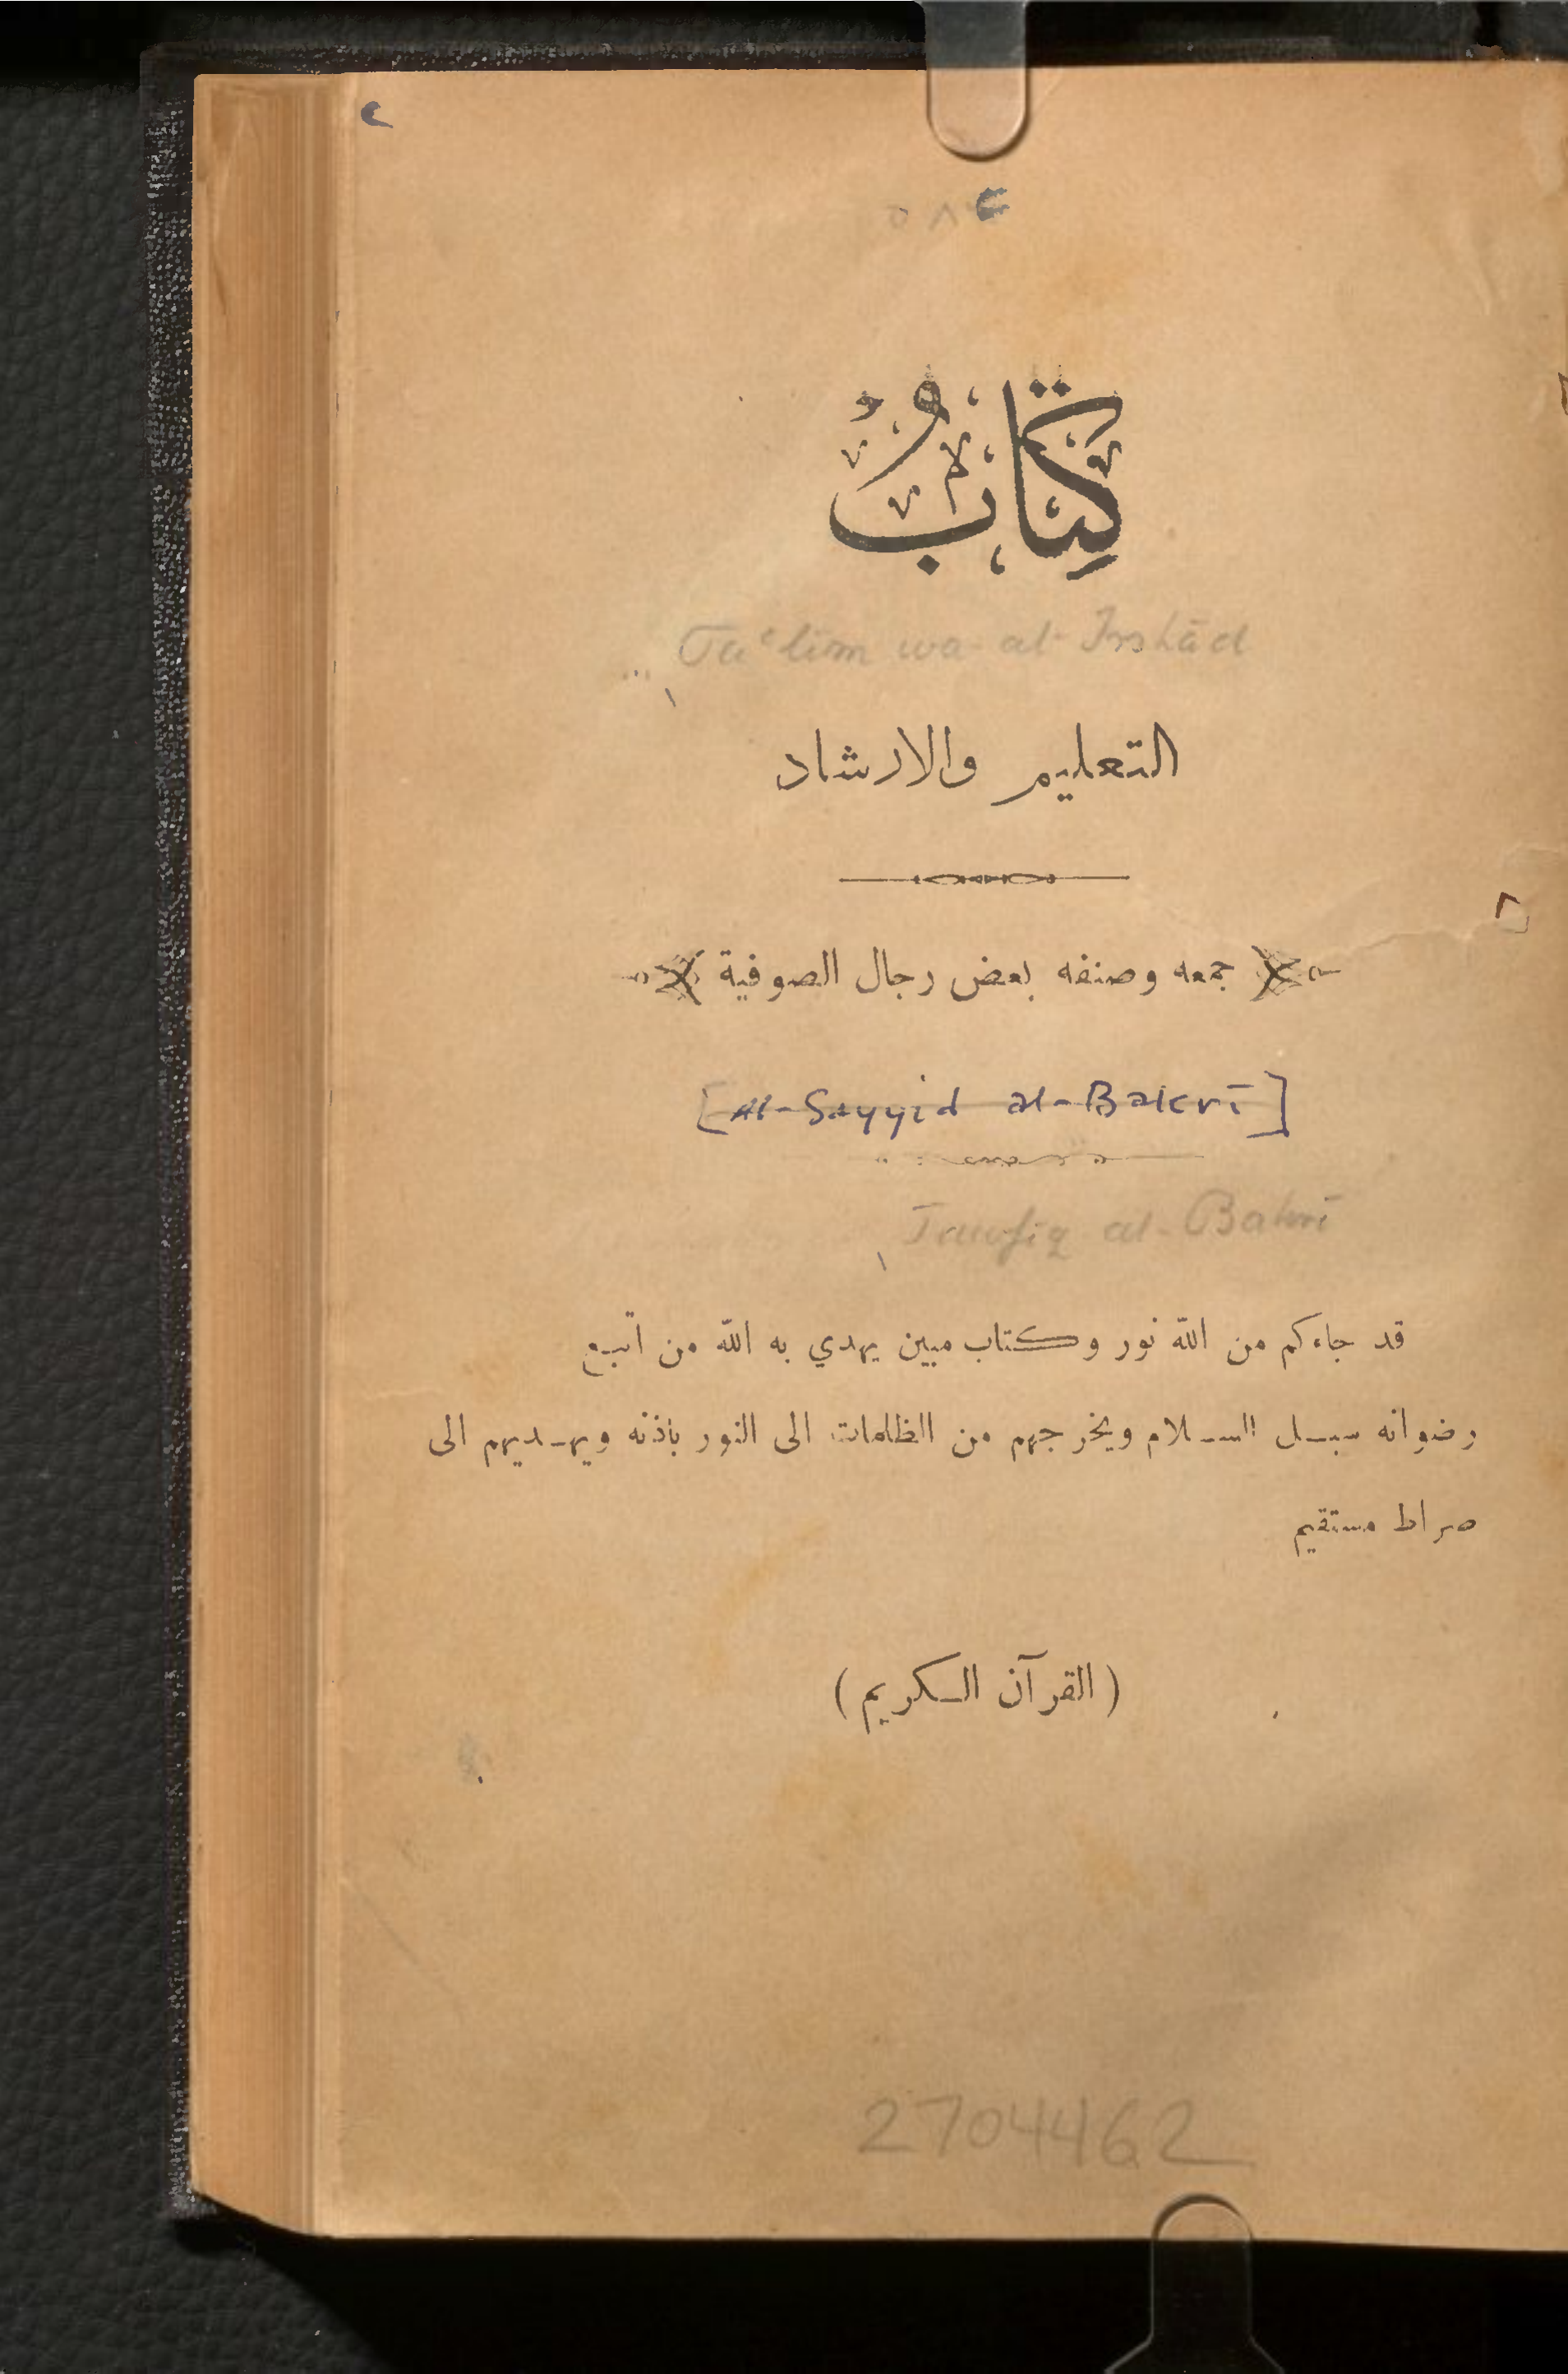 ٢
٥٨٤
كِتَابُ
Ta'līm wa-al-Irshād
التعليم والارشاد
جمعه وصنفه بعض رجال الصوفية
[Al-Sayyid al-Bakrī]
Tawfīq al-Bakrī
قد جاءكم من الله نور وكتاب مبين يهدي به الله من اتبع
رضوانه سبل السلام ويخرجهم من الظلمات الى النور بأذنه ويهديهم الى
صراط مستقيم
(القرآن الكريم)
2704462